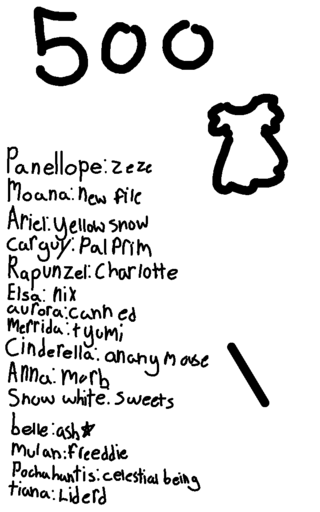 500
Panellope: zeze
Moana: new file
Ariel: yellow snow
car guy: Pal Prim
Rapunzel: Charlotte
Elsa: nix
aurora: canh ed
Merrida: tyumi
Cinderella: anany mouse
Anna: Marb
Snow white. Sweets
belle: ash★
mulan: freeddie
Pochahuntis: celestial being
tiana: Liderd